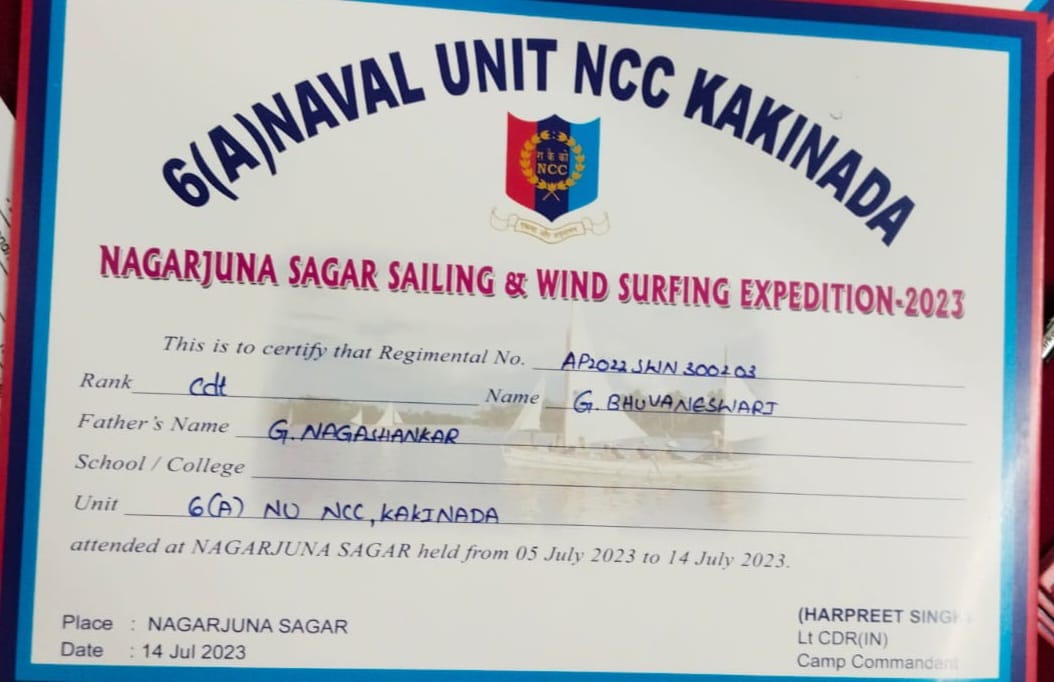 6(A)NAVAL UNIT NCC KAKINADA
रा कै को
NCC
एकता और अनुशासन
NAGARJUNA SAGAR SAILING & WIND SURFING EXPEDITION-2023
This is to certify that Regimental No. AP2022SWN300203
Rank Cdt Name G. BHUVANESWARI
Father's Name G. NAGASHANKAR
School / College
Unit 6(A) NU NCC, KAKINADA
attended at NAGARJUNA SAGAR held from 05 July 2023 to 14 July 2023.
Place : NAGARJUNA SAGAR
Date : 14 Jul 2023
(HARPREET SINGH)
Lt CDR(IN)
Camp Commandant